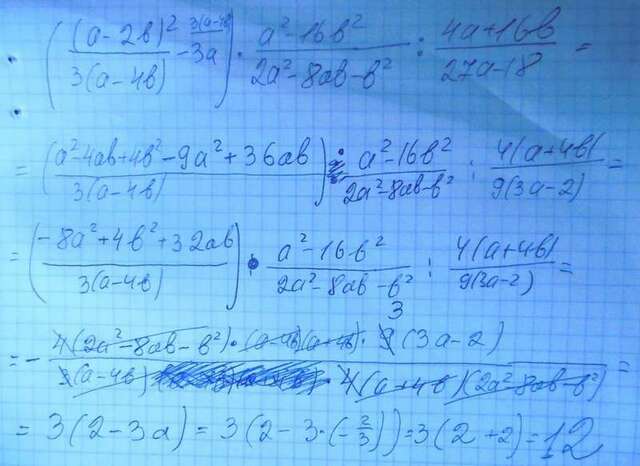 ((a-2b)²/3(a-4b) - 3a^3(a-4b)) · (a²-16b²)/(2a²-8ab-b²) : (4a+16b)/(27a-18) =
= ((a²-4ab+4b²-9a²+36ab)/3(a-4b)) · (a²-16b²)/(2a²-8ab-b²) : 4(a+4b)/9(3a-2) =
= ((-8a²+4b²+32ab)/3(a-4b)) · (a²-16b²)/(2a²-8ab-b²) : 4(a+4b)/9(3a-2) =
= - 4(2a²-8ab-b²)·(a-4b)(a+4b)·9 3(3a-2)/3(a-4b)·4(a+4b)(2a²-8ab-b²) =
= 3(2-3a) = 3(2-3·(-2/3)) = 3(2+2) = 12